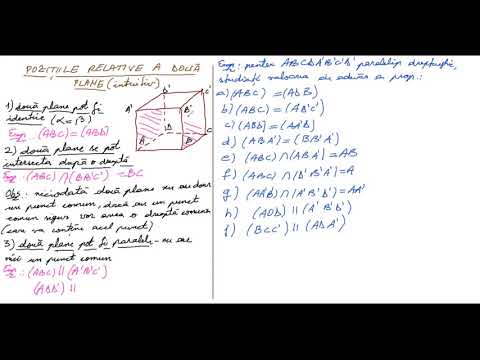 POZIȚIILE RELATIVE A DOUĂ
PLANE (intuitiv)
1) două plane pot fi
identice (α = β)
Exp: (ABC) = (ABD)
2) două plane se pot
intersecta după o dreaptă
Exp: (ABC) ∩ (BB'C') = BC
Obs: niciodată două plane nu au doar
un punct comun, dacă au un punct
comun sigur vor avea o dreaptă comună
(care va conține acel punct)
3) două plane pot fi paralele - nu au
nici un punct comun
Exp: (ABC) || (A'B'C')
(ADD') ||
A'
B'
C'
D'
A
B
C
D
Exp: pentru ABCDA'B'C'D' paralelip dreptunghic,
studiați valoarea de adevăr a prop.:
a) (ABC) = (ADB)
b) (ABC) = (A'B'C')
c) (ABD) = (AA'D)
d) (ABA') = (BB'A')
e) (ABC) ∩ (ABA') = AB
f) (ABC) ∩ (A'B'A) = A
g) (AA'B) ∩ (A'B'D') = AA'
h) (ADB) || (A'B'D')
i) (BCC') || (ADA')